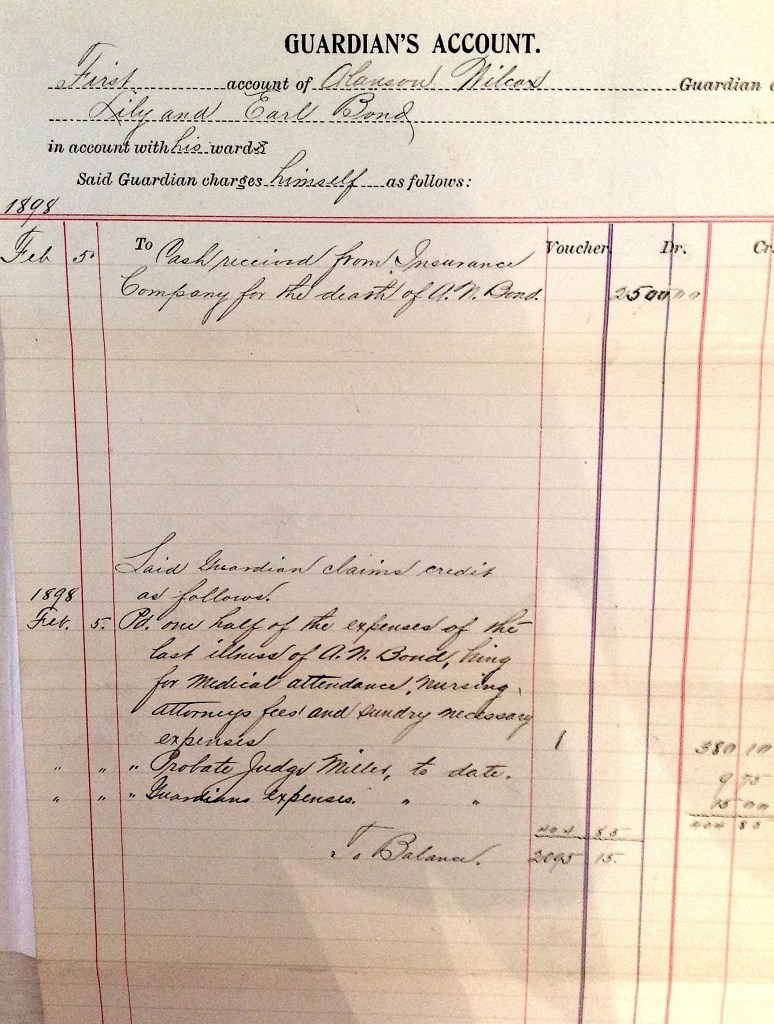 GUARDIAN'S ACCOUNT.
First account of Alanson Wilcox Guardian o
Lily and Earl Bond
in account with his wards
Said Guardian charges himself as follows:
1898
Voucher Dr. Cr.
Feb 5 To Cash received from Insurance
Company for the death of A. N. Bond. 2500 00
Said Guardian claims credit
as follows.
1898
Feb. 5. Pd. one half of the expenses of the
last illness of A. N. Bond, being
for Medical attendance, nursing,
attorneys fees and sundry necessary
expenses 1 380 10
" " " Probate Judge Miller, to date. 9 75
" " " Guardians expenses. " " 15 00
404 85 404 85
To Balance. 2095 15.